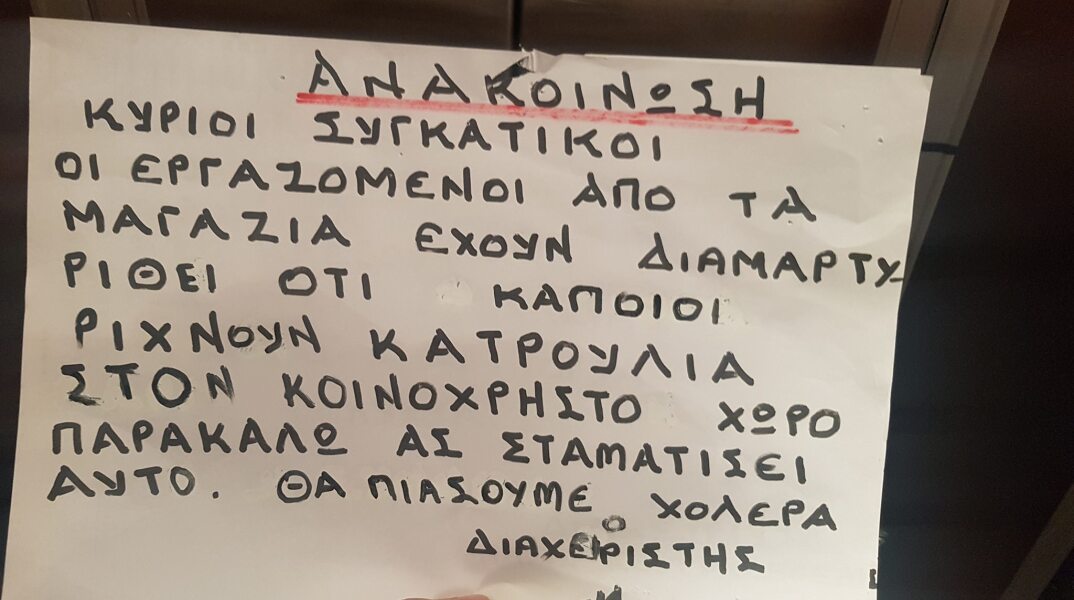 ΑΝΑΚΟΙΝΩΣΗ
ΚΥΡΙΟΙ ΣΥΓΚΑΤΙΚΟΙ
ΟΙ ΕΡΓΑΖΟΜΕΝΟΙ ΑΠΟ ΤΑ
ΜΑΓΑΖΙΑ ΕΧΟΥΝ ΔΙΑΜΑΡΤΥ
ΡΙΘΕΙ ΟΤΙ ΚΑΠΟΙΟΙ
ΡΙΧΝΟΥΝ ΚΑΤΡΟΥΛΙΑ
ΣΤΟΝ ΚΟΙΝΟΧΡΗΣΤΟ ΧΩΡΟ
ΠΑΡΑΚΑΛΩ ΑΣ ΣΤΑΜΑΤΙΣΕΙ
ΑΥΤΟ. ΘΑ ΠΙΑΣΟΥΜΕ ΧΟΛΕΡΑ
Ο ΔΙΑΧΕΙΡΙΣΤΗΣ